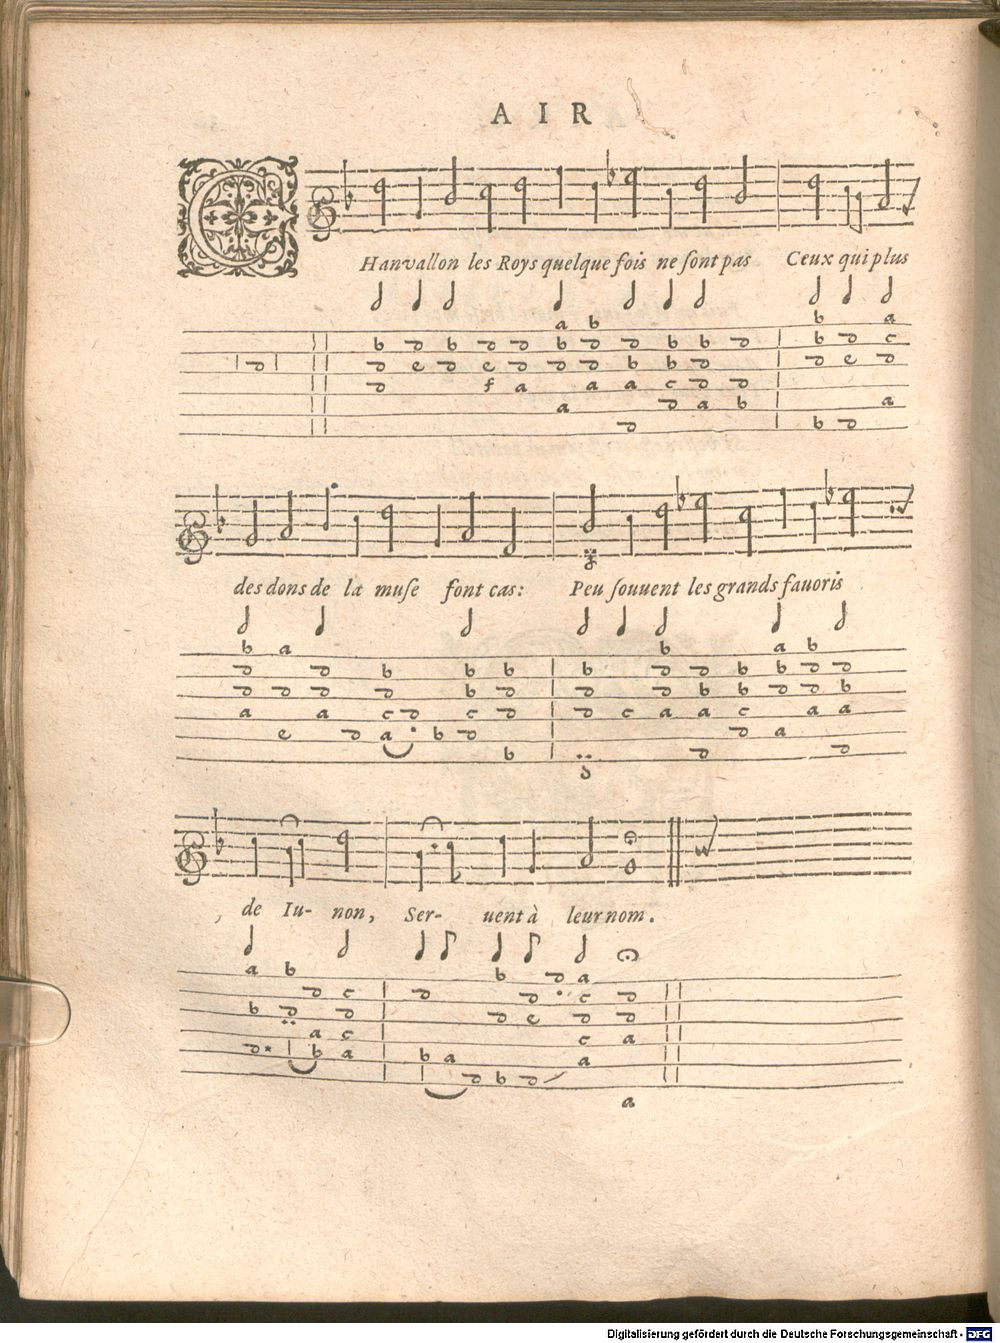 AIR
CHanvallon les Roys quelque fois ne ſont pas Ceux qui plus
des dons de la muſe font cas: Peu ſouuent les grands fauoris
, de Iu- non, Ser- uent à leur nom.
Digitalisierung gefördert durch die Deutsche Forschungsgemeinschaft - DFG